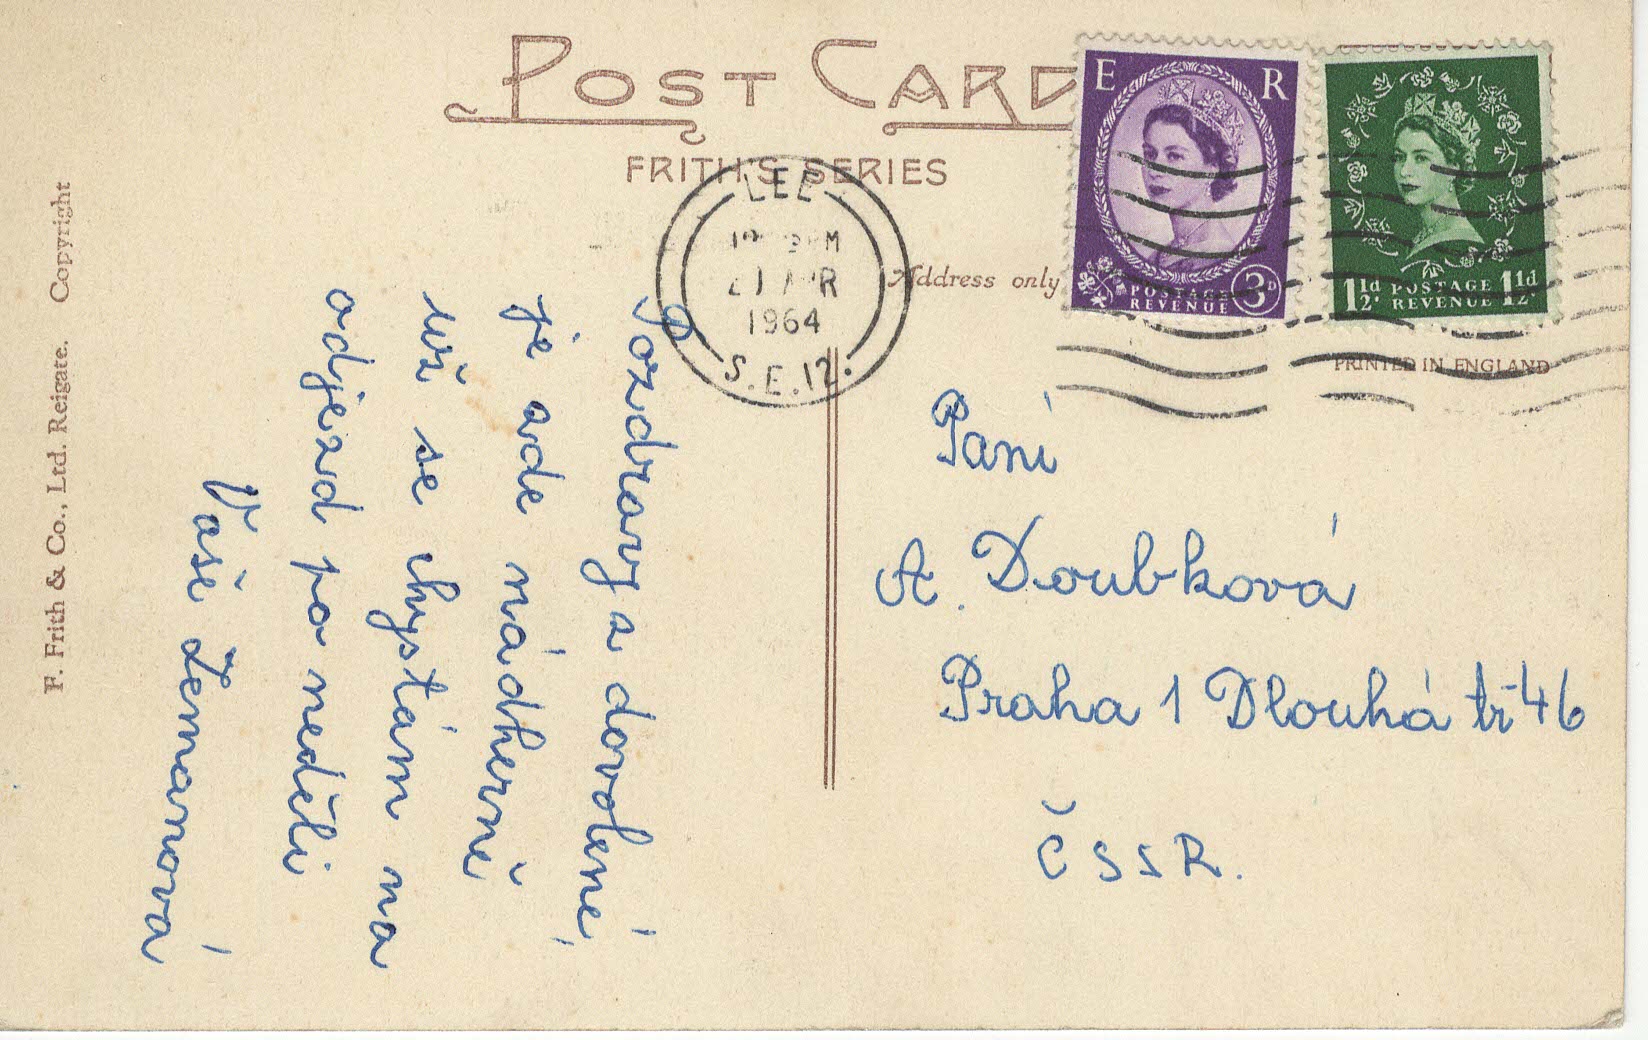 POST CARD
FRITH'S SERIES
LEE
PM
1964
S.E.12.
Address only
E R
POSTAGE
REVENUE
3D
1½d POSTAGE 1½d
REVENUE
PRINTED IN ENGLAND
F. Frith & Co., Ltd. Reigate. Copyright
Pozdravy z dovolené,
je zde nádherně
už se chystám na
odjezd po neděli
Vaše Zemanová
Paní
A. Doubková
Praha 1 Dlouhá tř 46
ČSSR.